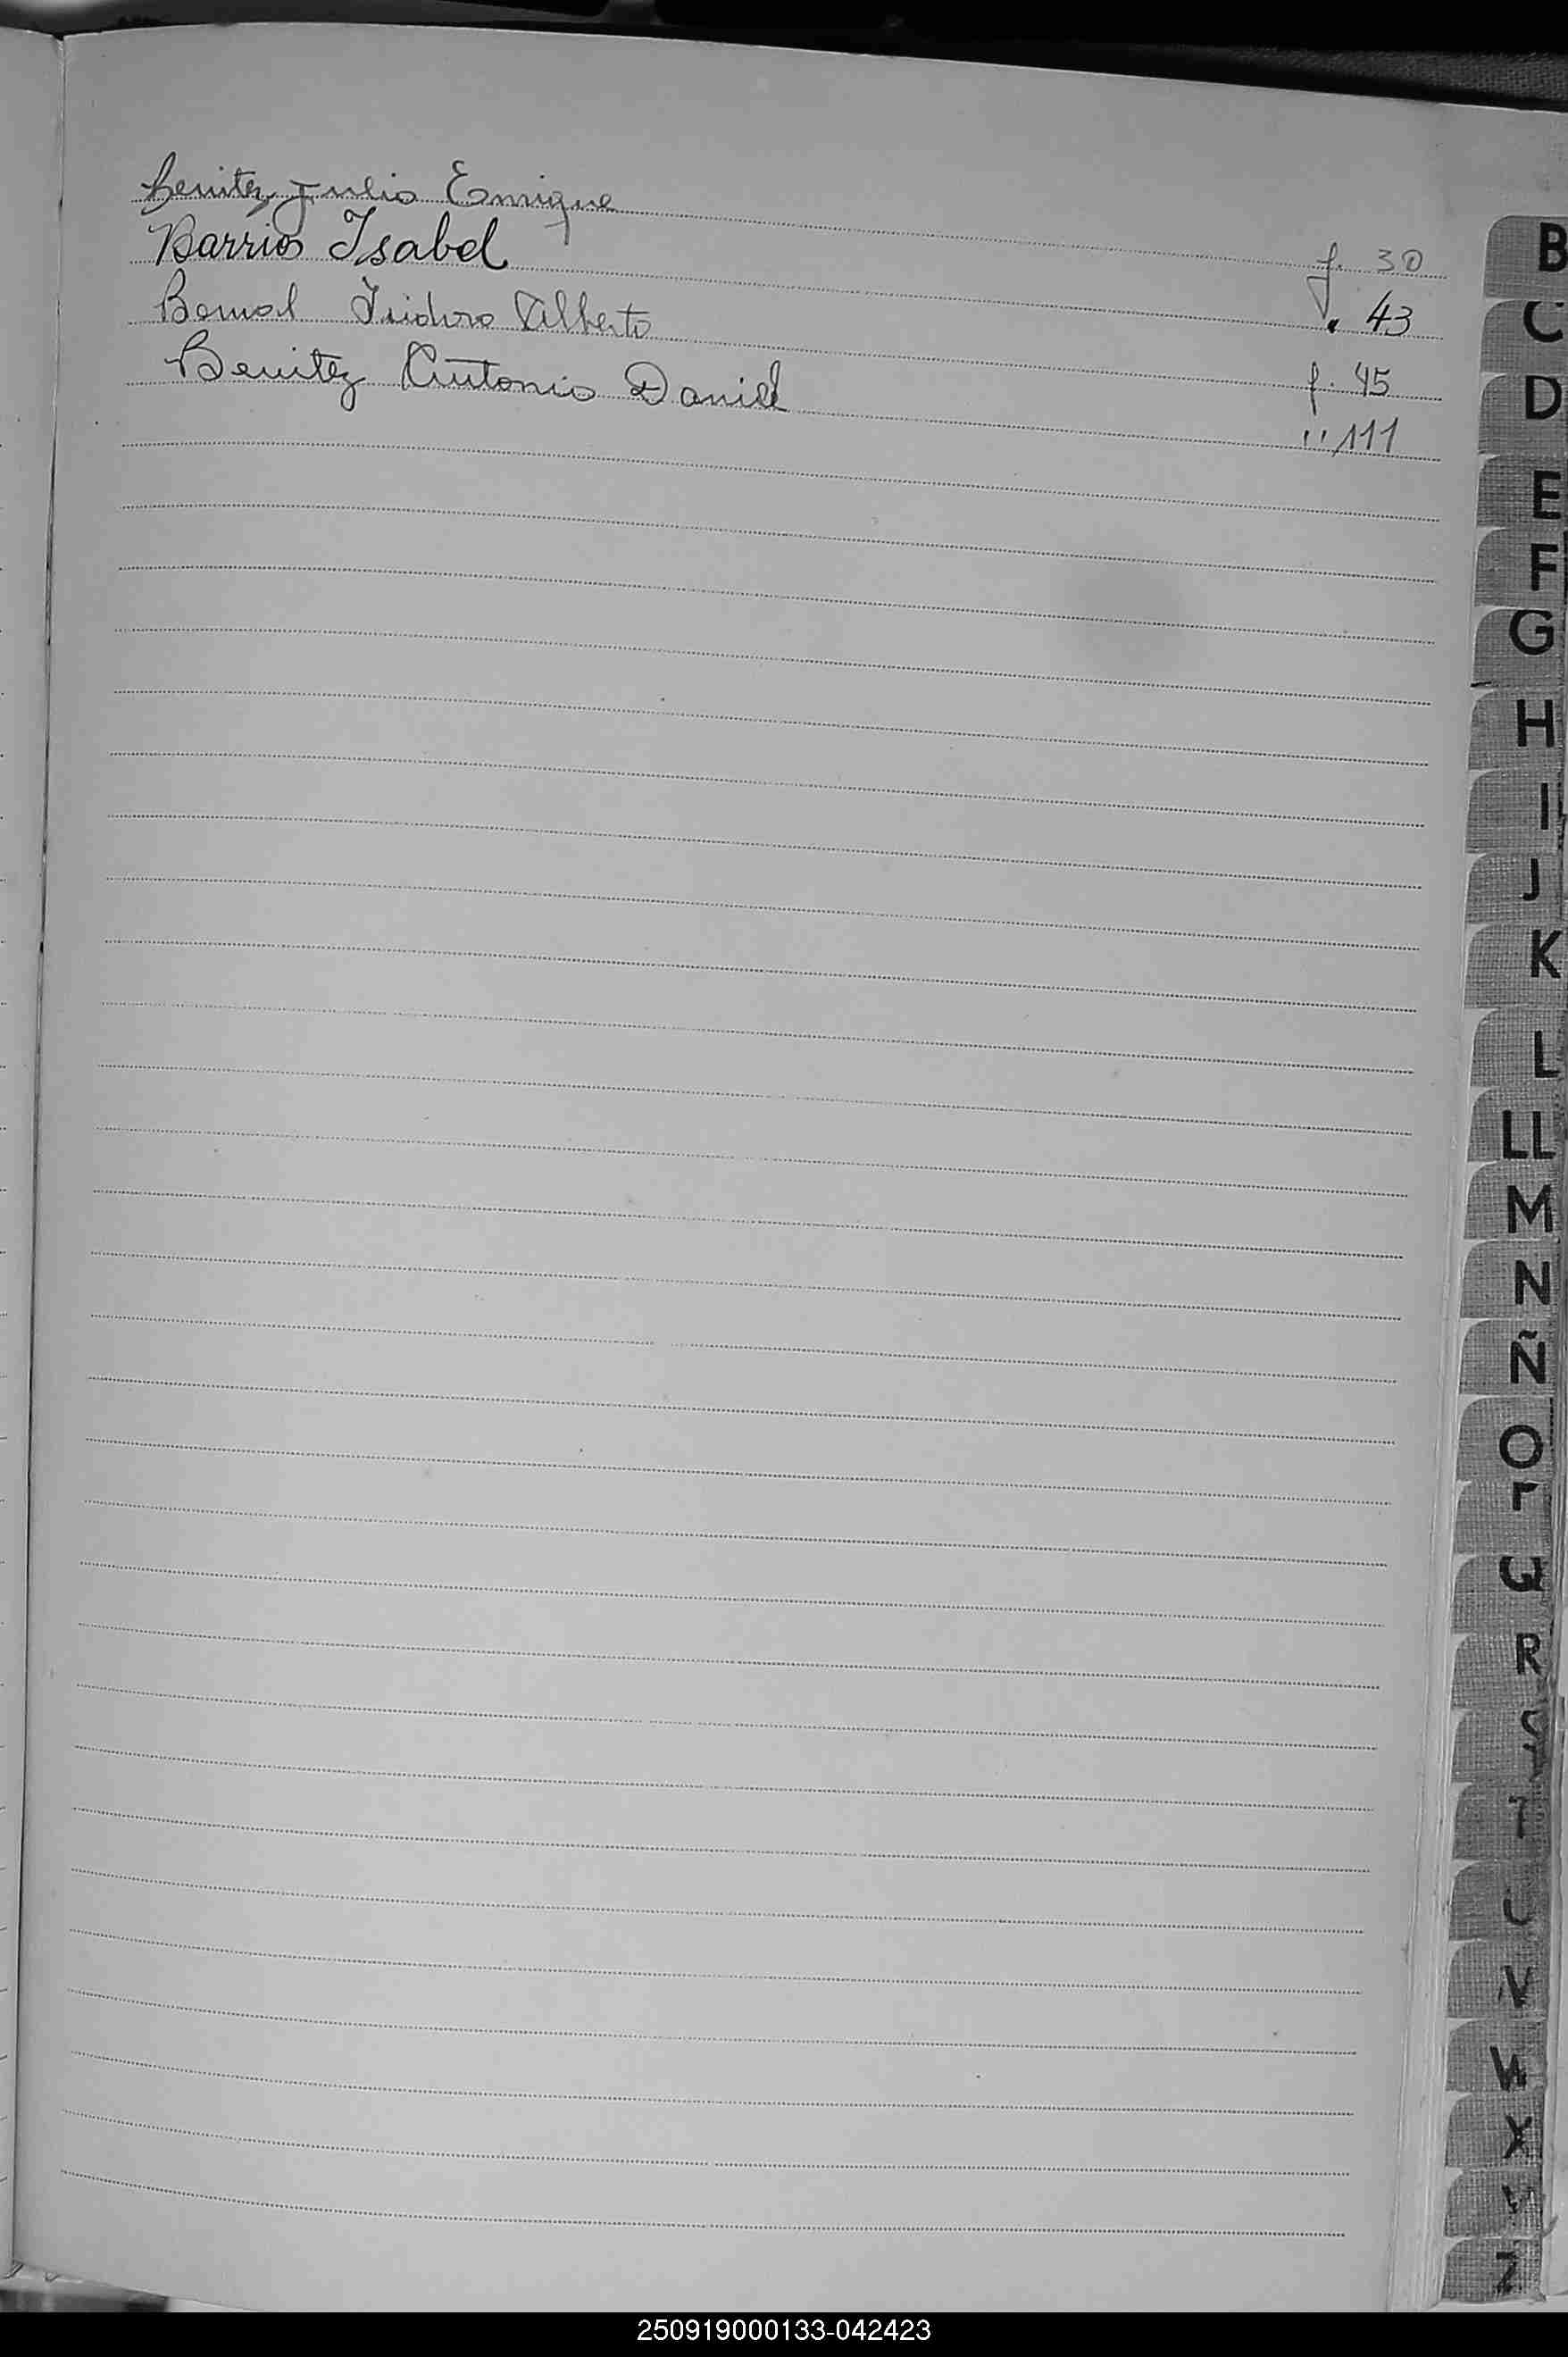 Benitez Julio Enrique f. 30
Barrios Isabel " 43
Bernal Isidoro Alberto f. 45
Benitez Antonio Daniel " 111
B
C
D
E
F
G
H
I
J
K
L
LL
M
N
Ñ
O
P
Q
R
S
T
U
V
W
X
Y
Z
250919000133-042423